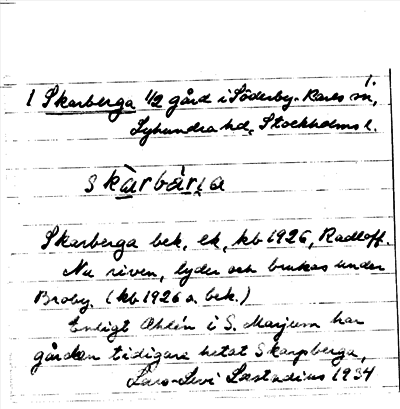 1.
1 Skarberga 1/2 gård i Söderby-Karls sn,
Lyhundra hd, Stockholms l.
skàrbária
Skarberga bek, ek, kb 1926, Radloff.
Nu riven, lyder och brukas under
Broby. (kb 1926 o. bek.)
Enligt Ohlén i S. Marjum har
gården tidigare hetat Skarpberga,
Lars-Levi Læstadius 1934